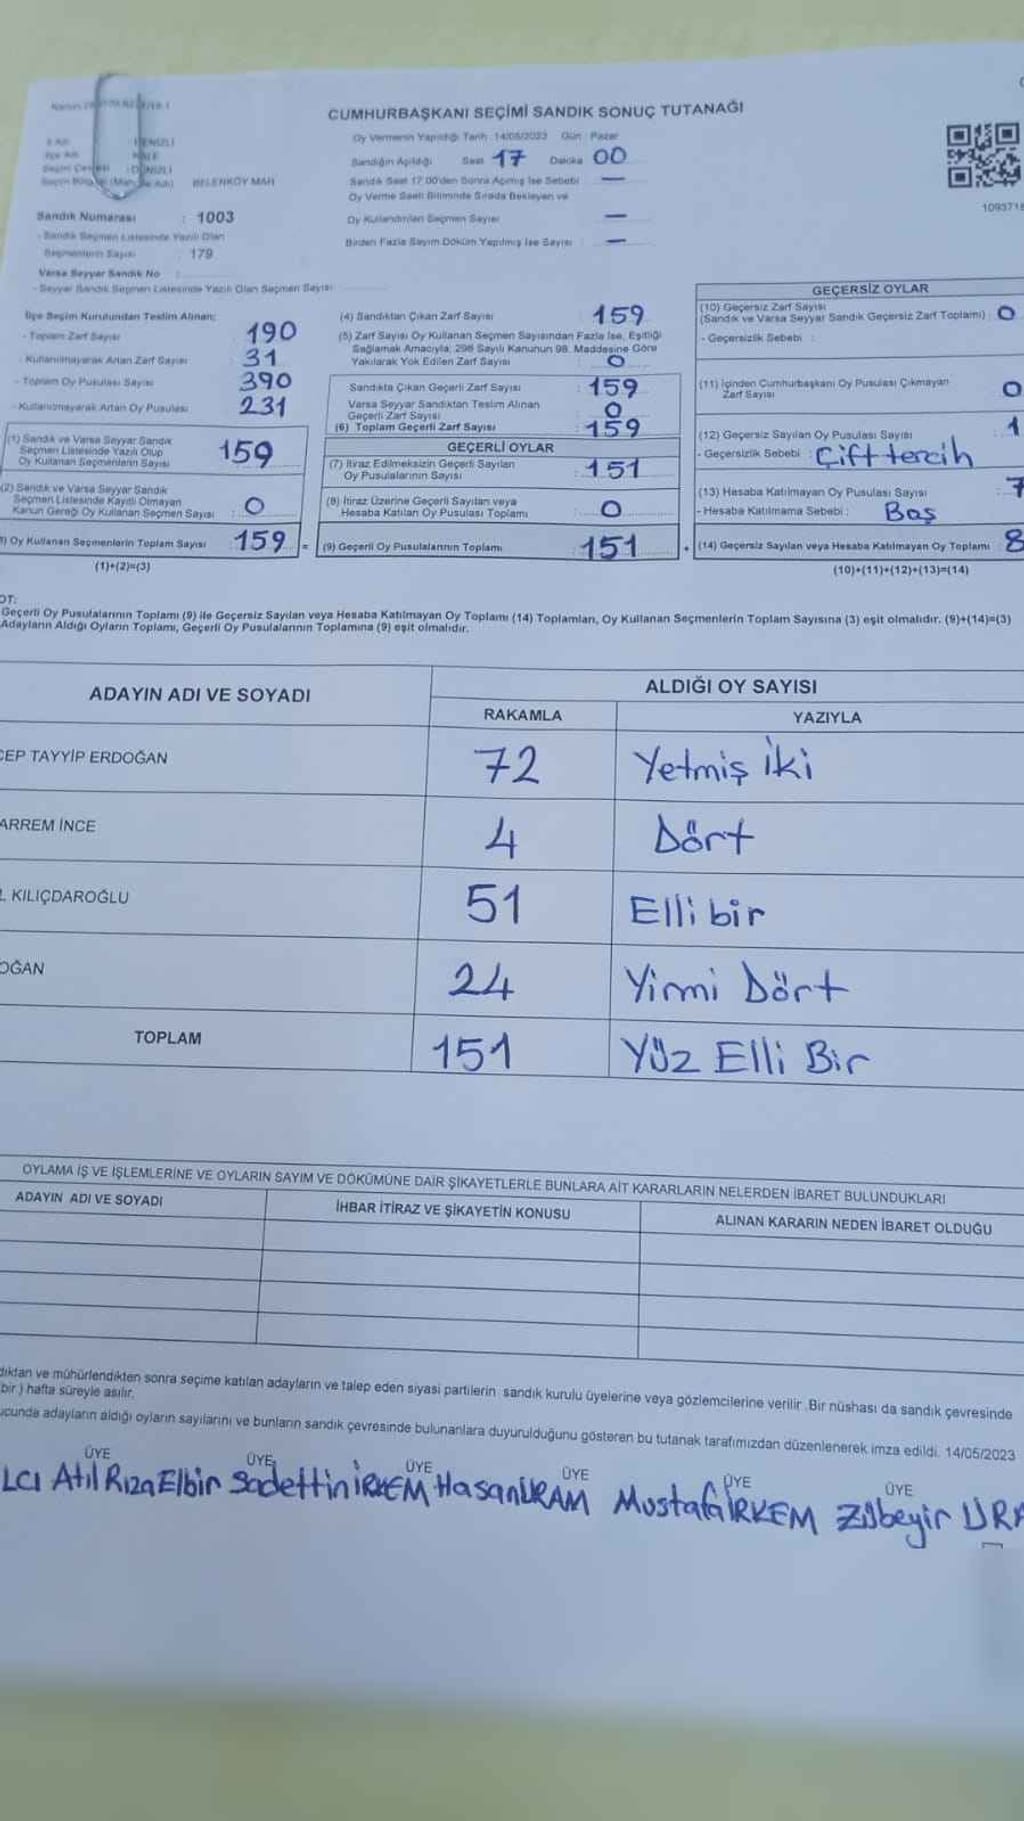 CUMHURBAŞKANI SEÇİMİ SANDIK SONUÇ TUTANAĞI
Oy Vermenin Yapıldığı Tarih : 14/05/2023 Gün : Pazar
Sandığın Açıldığı Saat 17 Dakika 00
Sandık Saat 17:00'den Sonra Açılmış İse Sebebi —
Oy Verme Saati Bitiminde Sırada Bekleyen ve
Oy Kullandırılan Seçmen Sayısı —
Birden Fazla Sayım Döküm Yapılmış İse Sayısı : —
DENİZLİ
KALE
DENİZLİ
BELENKÖY MAH
109371
Sandık Numarası : 1003
- Sandık Seçmen Listesinde Yazılı Olan
Seçmenlerin Sayısı : 179
Varsa Seyyar Sandık No :
- Seyyar Sandık Seçmen Listesinde Yazılı Olan Seçmen Sayısı
İlçe Seçim Kurulundan Teslim Alınan;
- Toplam Zarf Sayısı 190
- Kullanılmayarak Artan Zarf Sayısı 31
- Toplam Oy Pusulası Sayısı 390
- Kullanılmayarak Artan Oy Pusulası 231
(1) Sandık ve Varsa Seyyar Sandık
Seçmen Listesinde Yazılı Olup
Oy Kullanan Seçmenlerin Sayısı 159
(2) Sandık ve Varsa Seyyar Sandık
Seçmen Listesinde Kayıtlı Olmayan
Kanun Gereği Oy Kullanan Seçmen Sayısı : 0
) Oy Kullanan Seçmenlerin Toplam Sayısı 159 =
(1)+(2)=(3)
(4) Sandıktan Çıkan Zarf Sayısı 159
(5) Zarf Sayısı Oy Kullanan Seçmen Sayısından Fazla İse, Eşitliği
Sağlamak Amacıyla; 298 Sayılı Kanunun 98. Maddesine Göre
Yakılarak Yok Edilen Zarf Sayısı : 0
Sandıkta Çıkan Geçerli Zarf Sayısı : 159
Varsa Seyyar Sandıktan Teslim Alınan
Geçerli Zarf Sayısı : 0
(6) Toplam Geçerli Zarf Sayısı : 159
GEÇERLİ OYLAR
(7) İtiraz Edilmeksizin Geçerli Sayılan
Oy Pusulalarının Sayısı : 151
(8) İtiraz Üzerine Geçerli Sayılan veya
Hesaba Katılan Oy Pusulası Toplamı : 0
(9) Geçerli Oy Pusulalarının Toplamı : 151 +
GEÇERSİZ OYLAR
(10) Geçersiz Zarf Sayısı
(Sandık ve Varsa Seyyar Sandık Geçersiz Zarf Toplamı) : 0
- Geçersizlik Sebebi :
(11) İçinden Cumhurbaşkanı Oy Pusulası Çıkmayan
Zarf Sayısı : 0
(12) Geçersiz Sayılan Oy Pusulası Sayısı : 1
- Geçersizlik Sebebi : Çift tercih
(13) Hesaba Katılmayan Oy Pusulası Sayısı : 7
- Hesaba Katılmama Sebebi : Boş
(14) Geçersiz Sayılan veya Hesaba Katılmayan Oy Toplamı : 8
(10)+(11)+(12)+(13)=(14)
OT:
Geçerli Oy Pusulalarının Toplamı (9) ile Geçersiz Sayılan veya Hesaba Katılmayan Oy Toplamı (14) Toplamları, Oy Kullanan Seçmenlerin Toplam Sayısına (3) eşit olmalıdır. (9)+(14)=(3)
Adayların Aldığı Oyların Toplamı, Geçerli Oy Pusulalarının Toplamına (9) eşit olmalıdır.
ADAYIN ADI VE SOYADI
ALDIĞI OY SAYISI
RAKAMLA YAZIYLA
CEP TAYYİP ERDOĞAN 72 Yetmiş iki
ARREM İNCE 4 Dört
L KILIÇDAROĞLU 51 Elli bir
OĞAN 24 Yirmi Dört
TOPLAM 151 Yüz Elli Bir
OYLAMA İŞ VE İŞLEMLERİNE VE OYLARIN SAYIM VE DÖKÜMÜNE DAİR ŞİKAYETLERLE BUNLARA AİT KARARLARIN NELERDEN İBARET BULUNDUKLARI
ADAYIN ADI VE SOYADI İHBAR İTİRAZ VE ŞİKAYETİN KONUSU ALINAN KARARIN NEDEN İBARET OLDUĞU
dıktan ve mühürlendikten sonra seçime katılan adayların ve talep eden siyasi partilerin sandık kurulu üyelerine veya gözlemcilerine verilir. Bir nüshası da sandık çevresinde
bir ) hafta süreyle asılır.
ucunda adayların aldığı oyların sayılarını ve bunların sandık çevresinde bulunanlara duyurulduğunu gösteren bu tutanak tarafımızdan düzenlenerek imza edildi. 14/05/2023
ÜYE ÜYE ÜYE ÜYE ÜYE ÜYE
LCI Atıl Rıza Elbir Sadettin İRKEM Hasan URAM Mustafa İRKEM Zübeyir URA